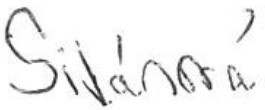 Sivánová